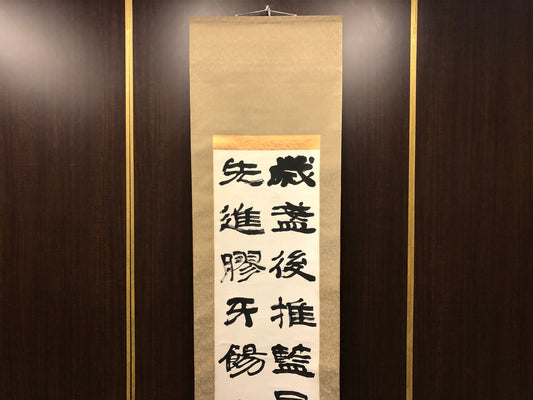 歳盞後推藍
先進膠牙餳